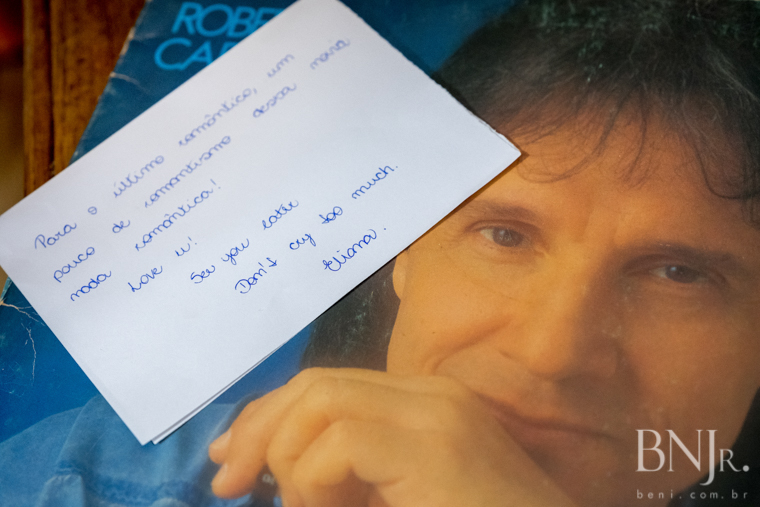 ROBE
CAR
Para o último romântico, um
pouco de romantismo dessa maria
mada romântica!
Love u!
See you later
Don't cry too much.
Eliana.
BNJR.
beni.com.br